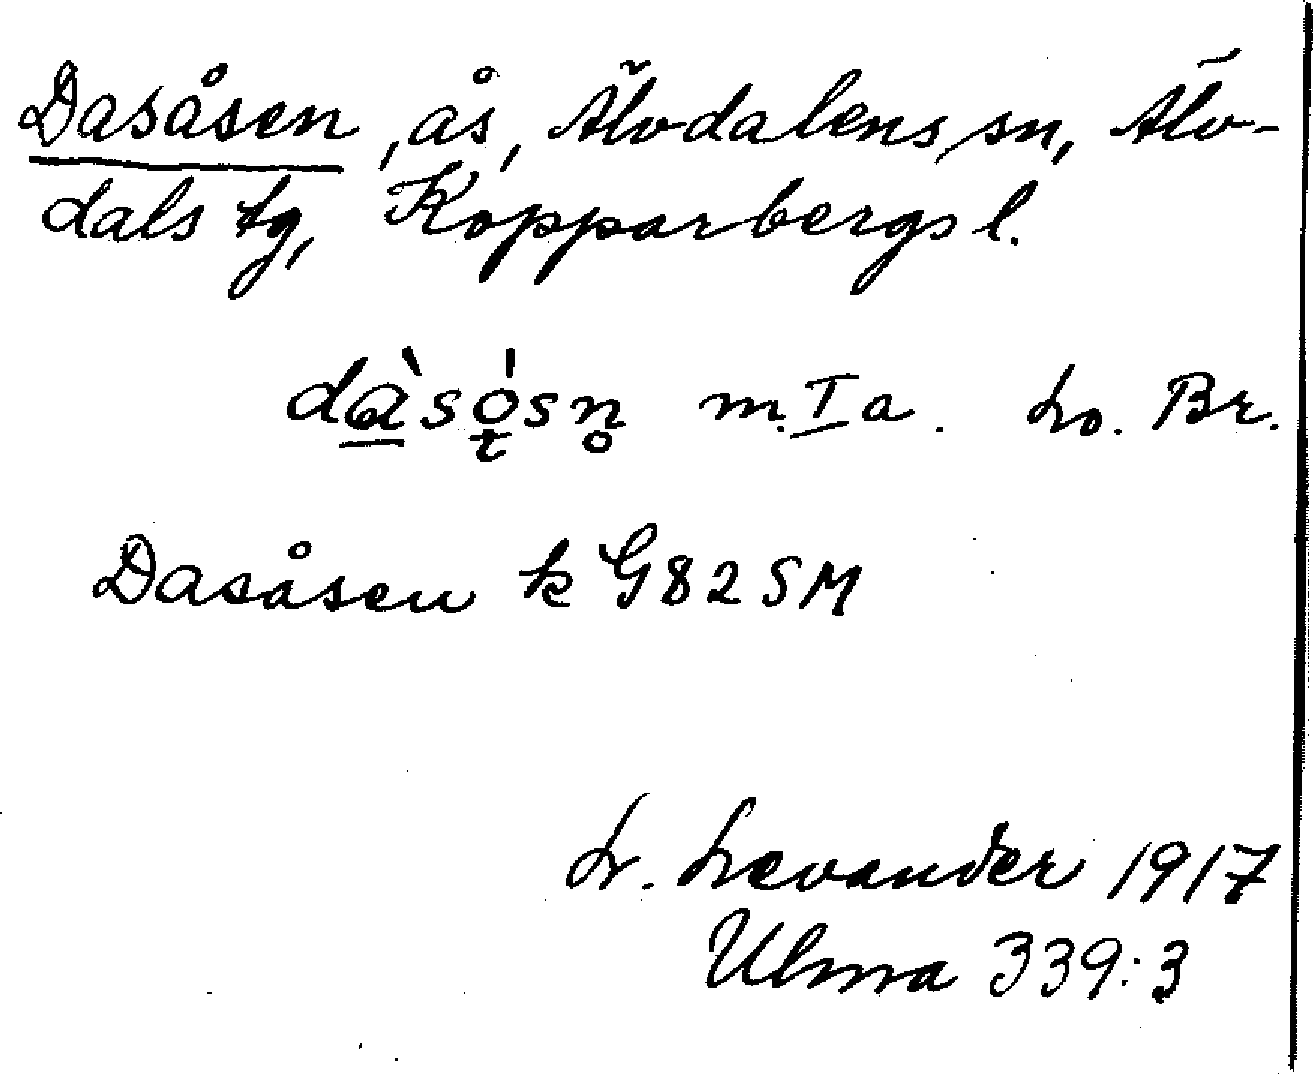 Dasåsen, ås, Älvdalens sn, Älv-
dals tg, Kopparbergs l.
dàsọ́sn̥ m. I a. Lo. Br.
Dasåsen k G82SM
L. Levander 1917
Ulma 339:3